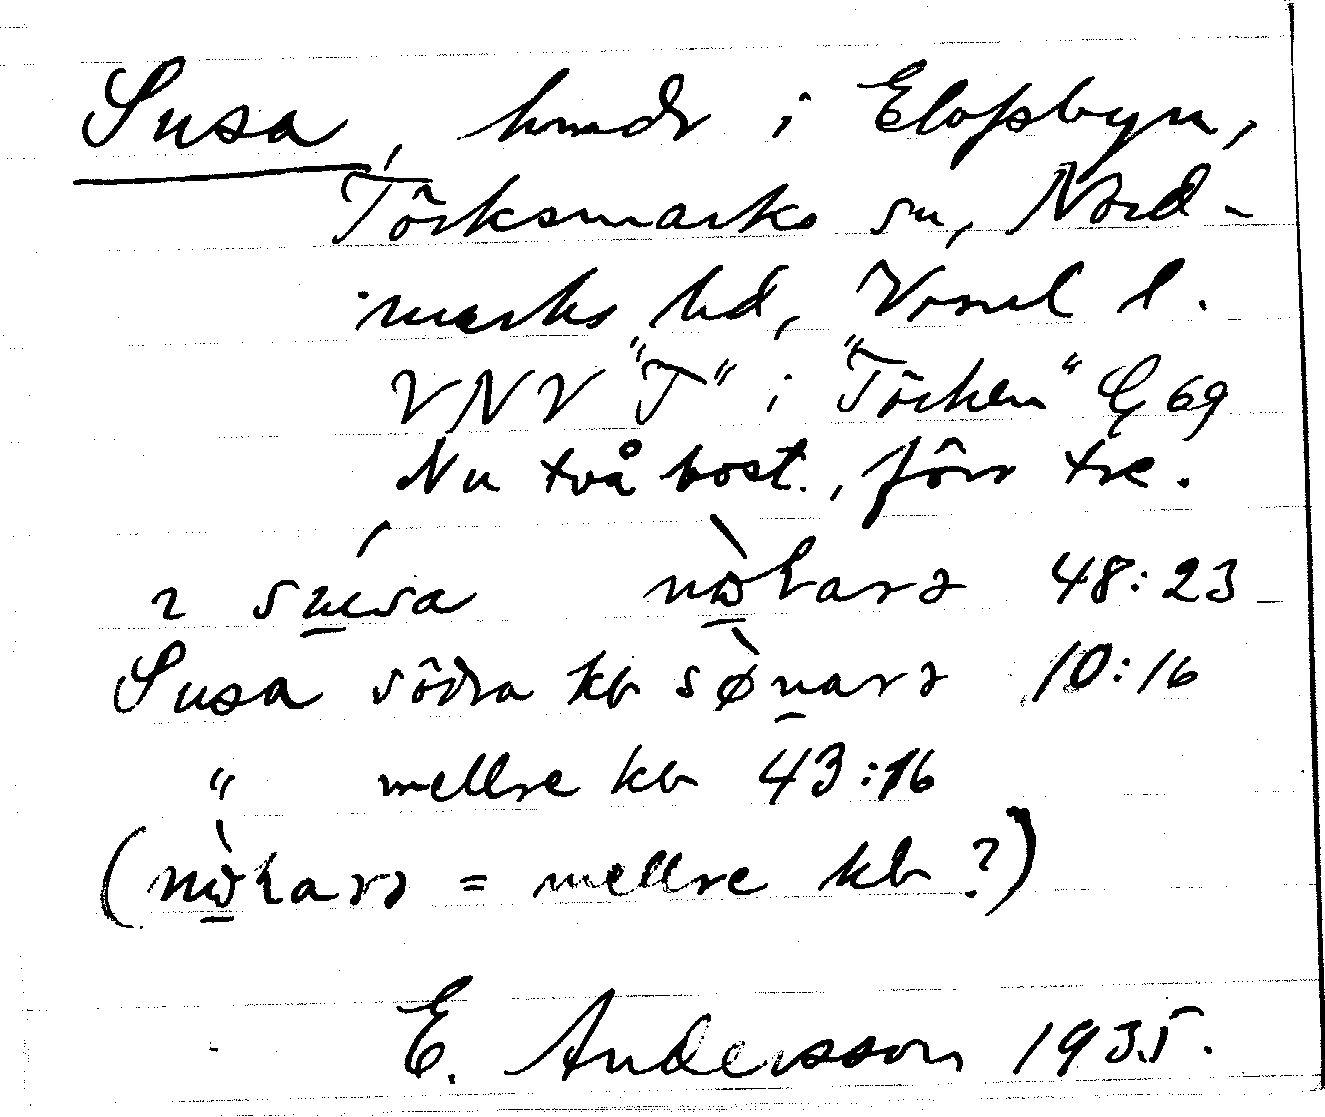 Susa, hmdr i Elofsbyn,
Töcksmarks sn, Nord-
marks hd, Värml l.
VNV "T" i "Töcken" G 69
Nu två bost., förr tre.
48:23
Susa södra kb 10:16
" mellre kb 43:16
( = mellre kb?)
E. Andersson 1935.